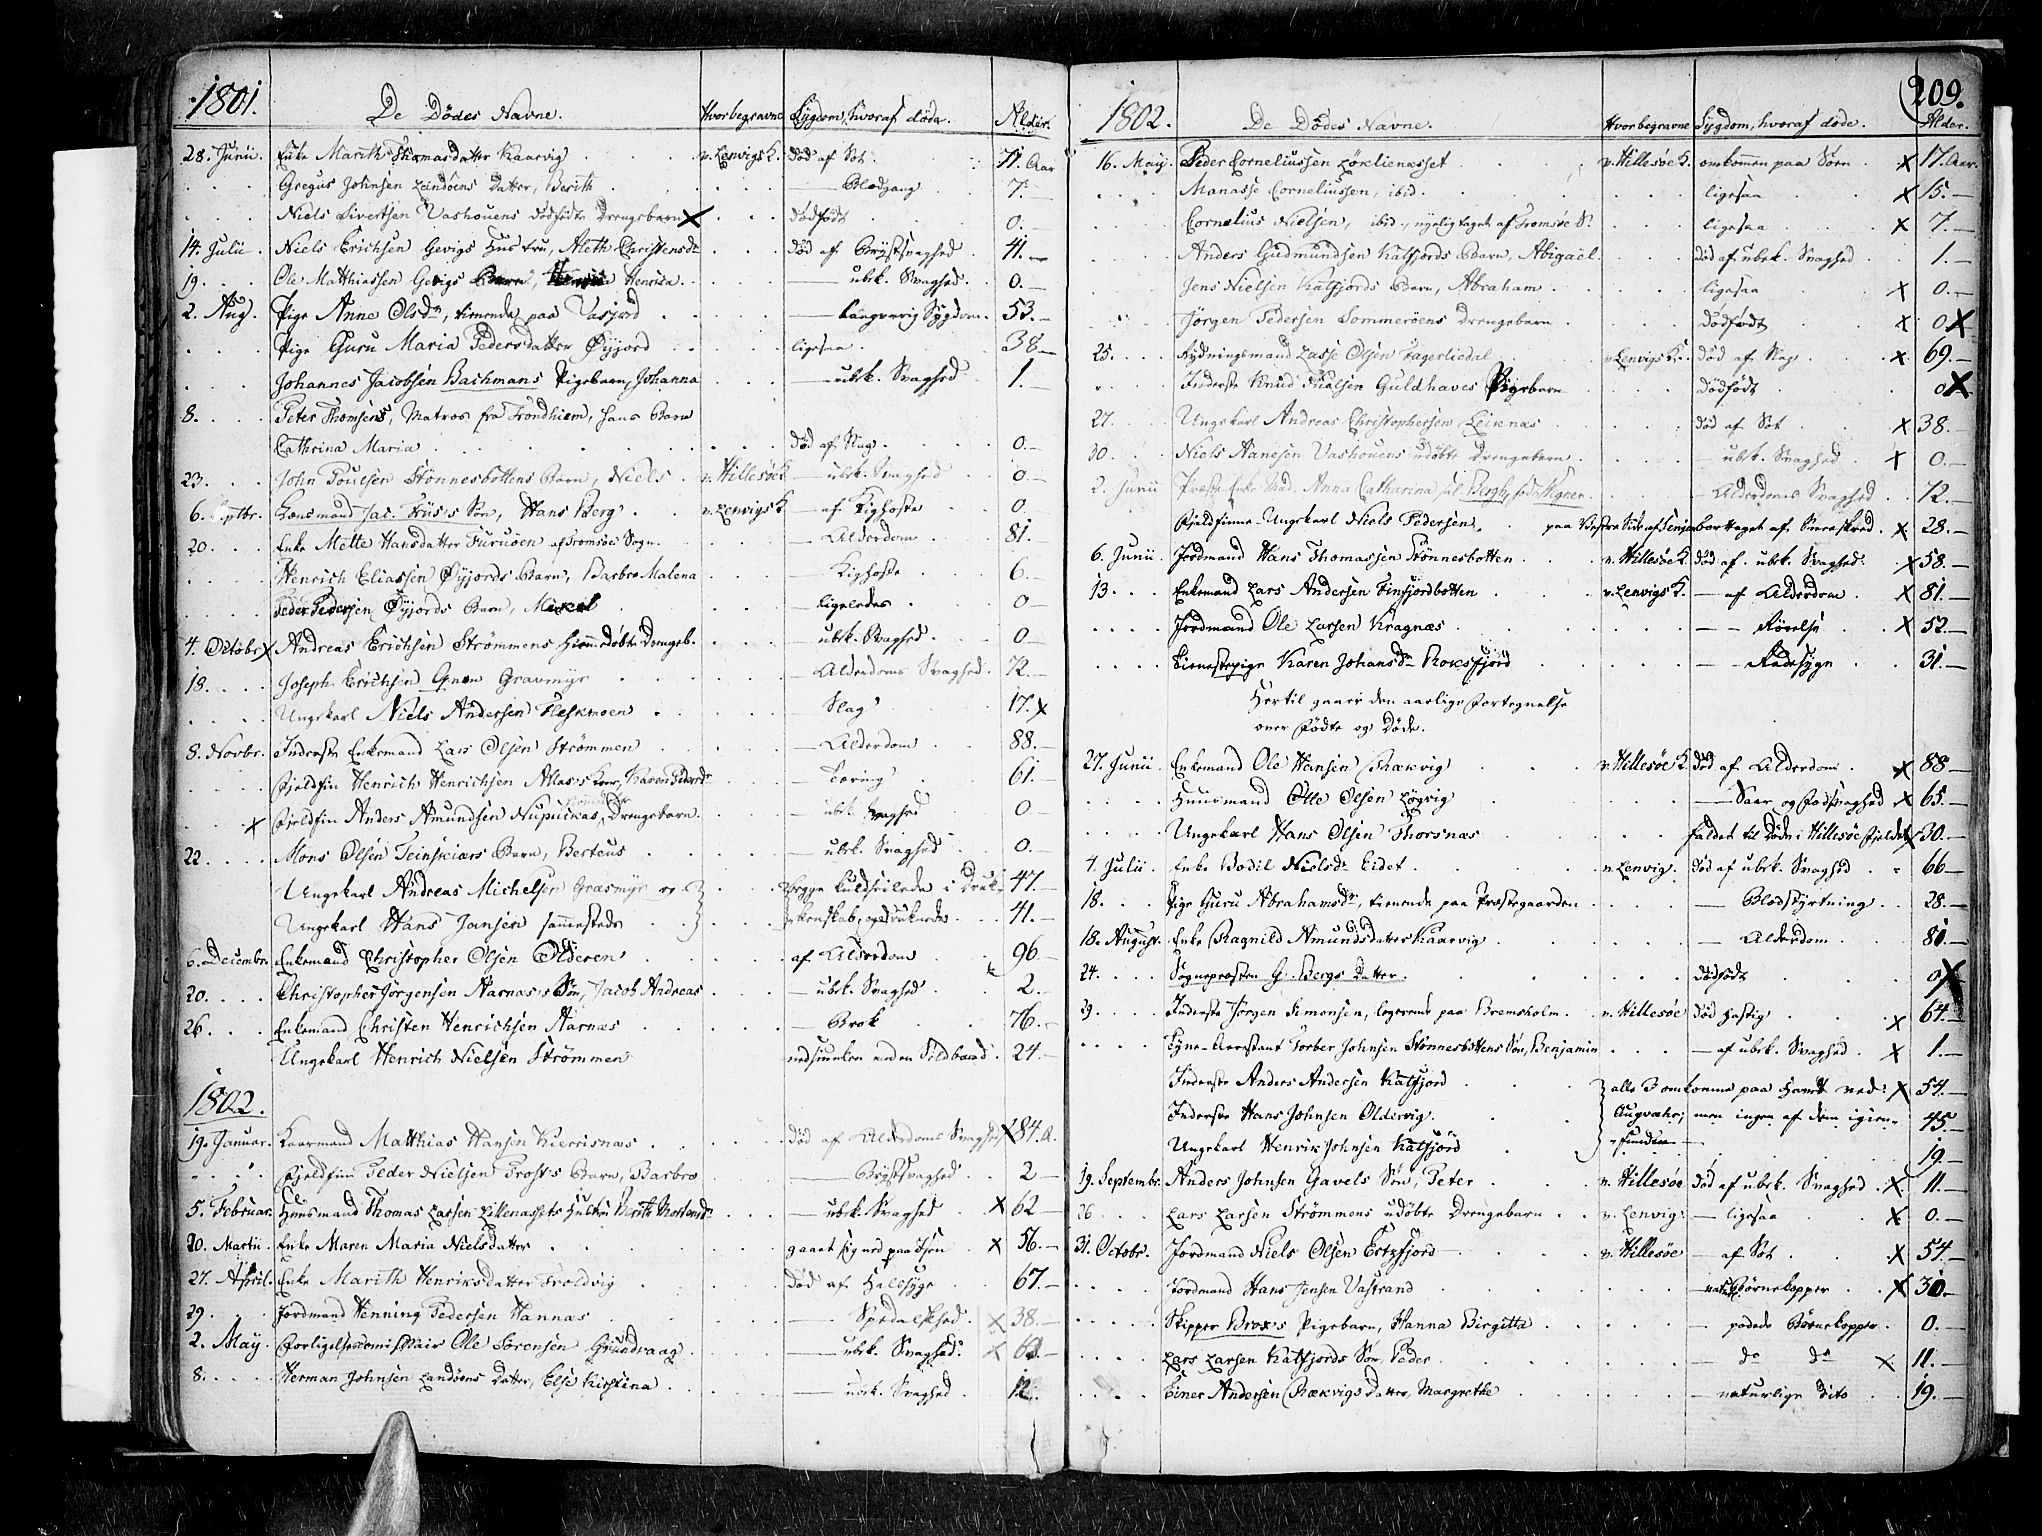 1801.
De Dödes Navne. Hvor begravne Sygdom, hvoraf döde. Alder.
28. Junii. Enke Marith Thomasdatter Kaarvig v. Lenvigs K. död af Sot. 71. Aar
Gregus Johnsen Landöens Datter, Berith Blodgang 7.
Niels Sivertsen Vashouens dödfödte Drengebarn dödfödt 0.
14. Julii. Niels Erichsen Gevigs Hustru, Aleth Christensd. död af Brystsvaghed 41.
19. Ole Matthiassen Gevigs Barn, Henrica ubek. Svaghed. 0.
2. Aug. Pige Anne Olsd., tienende paa Vasjord Langvarig Sygdom. 53.
Pige Guru Maria Pedersdatter Öyjord ligesaa 38
Johannes Jacobsen Bachmans Pigebarn, Johanna ubek. Svaghed 1.
8. Peter Thomsens, Matros fra Trondhiem, hans Barn
Cathrina Maria död af Slag. 0.
23. John Poulsen Stönnesbottens Barn, Niels v. Hillesöe K ubek. Svaghed 0.
6. Septbr. Lensmand Jac. Friis's Sön, Hans Berg v. Lenvigs K af Kighoste 0.
20. Enke Mette Hansdatter Furuöen af Tromsöe Sogn. Alderdom 81.
Henrich Eliassen Öyjords Barn, Barbro Malena Kighoste 6.
Peder Pedersen Öyjords Barn, ligeledes 0
4. Octobr. Andreas Erichsen Strömmens Hiemmedöbte Drengeb. ubek. Svaghed. 0
18. Joseph Erichsen Gravmyr Alderdoms Svaghed. 72.
Ungekarl Niels Andersen Fleskmoen Slag 17.
8. Novbr. Inderste Enkemand Lars Olsen Strömmen Alderdom 88.
Fieldfin Henrich Henrichsen Kone, Karen Pedersd. Tæring 61.
Fieldfin Anders Amundsen Nupuckas, Drengebarn. ubek. Svaghed 0
22. Mons Olsen Teinskiærs Barn, Berteus ubek. Svaghed 0.
Ungekarl Andreas Michelsen Græsmyr og begge kuldseilede i Druk= 47.
Ungekarl Hans Jansen sammesteds kenskab, og druknede 41.
6. Decembr. Enkemand Christopher Olsen Olderen af Alderdom 96.
20. Christopher Jörgensen Aarnæs's Sön, Jacob Andreas ubek. Svaghed 2.
26. Enkemand Christen Henrichsen Aarnæs Brok 76.
Ungekarl Henrich Nielsen Strömmen nedsunken under Sildbaad. 24.
1802.
19. Januar. Kaarmand Matthias Hansen Kierrisnæs död af Alderdoms Svaghed 84. A.
Fieldfin Peder Nielsen Trost's Barn, Barbro Brystsvaghed 2
5. Februar. Huusmand Thomas Larsen Lillenæssets Hustru Berith Mortensd. ubek. Svaghed 62
20. Martii. Enke Maren Maria Nielsdatter gaaet sig ned paa Isen 56.
27. April. Enke Marith Henriksdatter Troldvig död af Halssyge 67.
29. Jordmand Henning Pedersen Hannæs Spedalskhed 38.
2. May. Forligelsescomissair Ole Sörensen Grundvaag ubek. Svaghed
8. Herman Johnsen Landöens Datter, Else Kirstina ubek. Svaghed 12.
209.
1802. De Dödes Navne. Hvor begravne Sygdom, hvoraf döde. Alder.
16. May. Peder Corneliussen Löklienæsset v. Hillesöe K. omkommen paa Söen 17. Aar.
Manasse Corneliussen, ibid. ligesaa 15.
Cornelius Nielsen, ibid., nyelig taget af Tromsöe S. ligesaa 7.
Anders Gudmundsen Katfjords Barn, Abigael. död af ubek. Svaghed 1.
Jens Nielsen Katfjords Barn, Abraham ligesaa 0.
Jörgen Pedersen Sommeröens Drengebarn dödfödt 0
25. Rydningsmand Lasse Olsen Fagerlidal v. Lenvigs K. död af Slag 69.
Inderste Knud Guldhaves Pigebarn dödfödt 0
27. Ungekarl Andreas Christophersen Leiknæs död af Sot 38.
30. Niels Hanesen Vashouens udöbte Drengebarn ubek. Svaghed 0.
2. Junii Præste Enke Mad. Anna Catharina sal. Bergh, föd Aligner Alderdoms Svaghed 72.
Fieldfinne-Ungekarl Niels Pedersen, paa Vestre Side af Senjen borttaget af Sneeskred. 28.
6. Junii. Jordmand Hans Thomassen Stönnesbotten v. Hillesöe K. död af ubek. Svaghed. 58.
13. Enkemand Lars Andersen Finfjordbotten v. Lenvigs K. af Alderdom 81.
Jordmand Ole Larsen Kragnæs 52.
Tienestepige Karen Johansd. Roksfjord Radesyge 31.
Hertil gaaer den aarlige Fortegnelse
over Födte og Döde.
27. Junii. Enkemand Ole Hansen Bækvig v. Hillesöe K död af Alderdom 88
Huusmand Olle Olsen Lögvig Saar og Fodsvaghed 65.
Ungekarl Hans Olsen Thorsnæs faldet til Döde i Hillesöe Fieldet 30.
4. Julii. Enke Bodil Nielsd. Eidet. v. Lenvig. död af ubek. Svaghed 66
18. Pige Guru Abrahamsd., tienende paa Præstegaarden Blodstyrtning 28.
18. August. Enke Ragnild Amundsdatter Kaarvig Alderdom 80.
24. Sognepræsten G. Bergs Datter. dödfödt 0
29. Inderste Jörgen Simonsen, logerende paa Bremsholm. v. Hillesöe död hastig 64.
Tyve-Arrestant Torber Johnsen Stönnesbottens Sön, Benjamin af ubek. Svaghed 1.
Inderste Anders Andersen Katfjord alle 3 omkomne paa Havet ved 54.
Inderste Hans Johnsen Oldervig. Augvæhr; men ingen af dem igien= 45.
Ungekarl Henrik Johnsen Katfjord funden 19.
19. Septembr. Anders Johnsen Gavels Sön, Peter v. Hillesöe död af ubek. Svaghed 11.
26 Lars Larsen Strömmens udöbte Drengebarn v. Lenvig. ligesaa 0.
31. Octobr. Jordmand Niels Olsen Ertzfjord v. Hillesöe af Sot 54.
Jordmand Hans Jensen Vastrand naturl. Börnekopper 30.
Skipper Brox's Pigebarn, Hanna Birgitta podede Börnekopper. 0.
Lars Larsen Katfjords Sön, Peder do do 11.
Einer Andersen Bækvigs Datter, Margrethe naturlige dito 19.